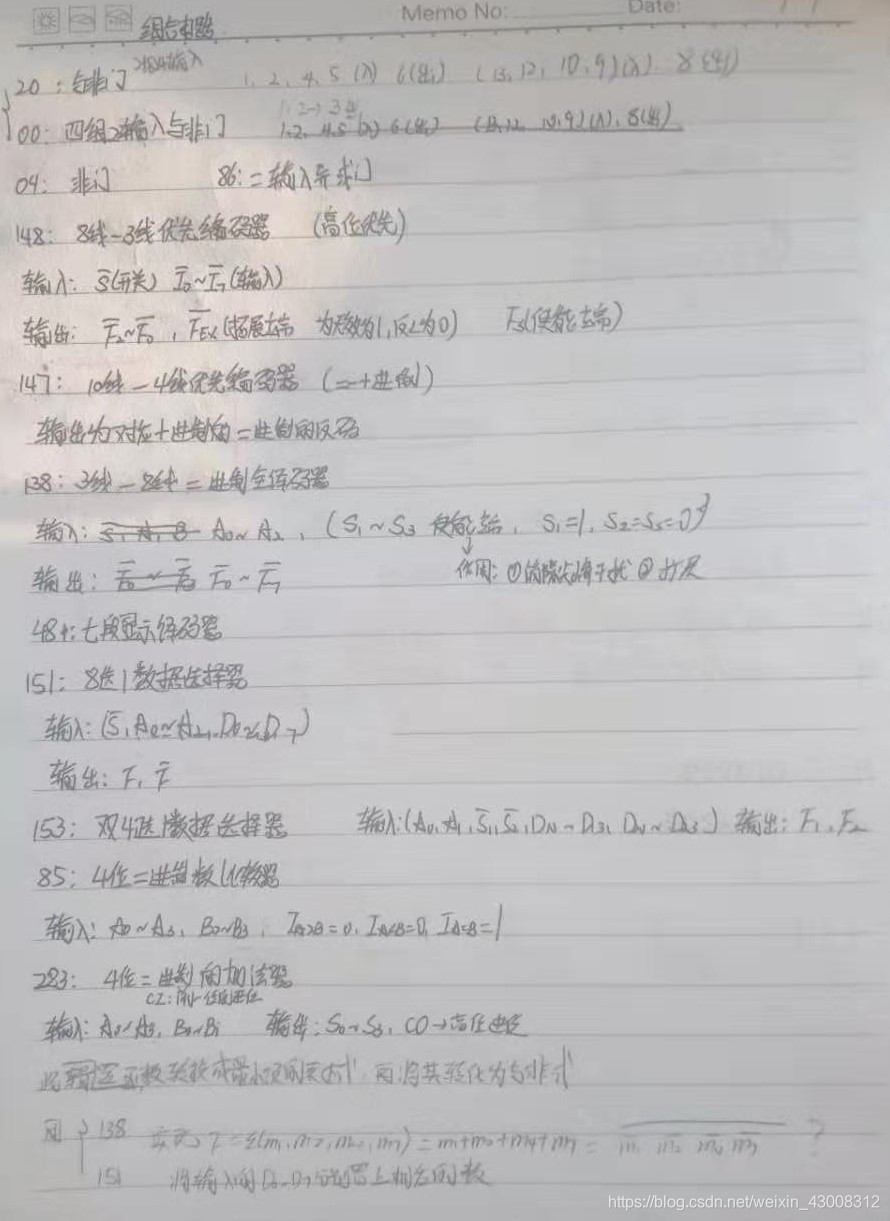 Memo No: Date:
组合电路
20：与非门 2组4输入 1, 2, 4, 5 (入) 6(出) (13, 12, 10, 9)(入). 8(出)
1, 2→3出
00：四组2输入与非门 1,2, 4,5 (入) 6(出) (13,12, 10,9)(入), 8(出)
04：非门 86：二输入异或门
148：8线-3线优先编码器 (高位优先)
输入：S̅(开关) I̅0~I̅7(输入)
输出：F̅2~F̅0, F̅EX(拓展端 为无效为1,反之为0) Fs(使能端)
147：10线-4线优先编码器 (二十进制)
输出为对应十进制的二进制的反码
138：3线-8线二进制全译码器
输入： A0~A2, (S1~S3 使能端, S1=1, S2=S3=0)
作用：①消除尖峰干扰 ②扩展
输出： F̅0~F̅7
48：七段显示译码器
151：8选1数据选择器
输入：(S̅, A0~A2, D0~D7)
输出：F, F̅
153：双4选1数据选择器 输入：(A0, A1, S̅1, S̅2, D10~D13, D20~D23) 输出：F1, F2
85：4位二进制数比较器
输入：A0~A3, B0~B3, IA>B=0, IA<B=0, IA=B=1
283：4位二进制的加法器
CI：前一位的进位
输入：A0~A3, B0~B3 输出：S0~S3, CO→高位进位
将逻辑函数转换成最小项的表达式，再将其转化为与非式
用 138 实现 F=Σ(m1, m2, m4, m7) = m1+m2+m4+m7 = ?
151 将输入的D0~D7 上相应的数
https://blog.csdn.net/weixin_43008312